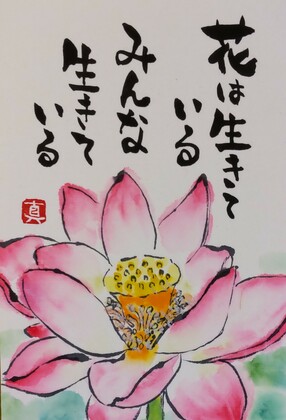 花は生きて
いる
みんな
生きて
いる
真